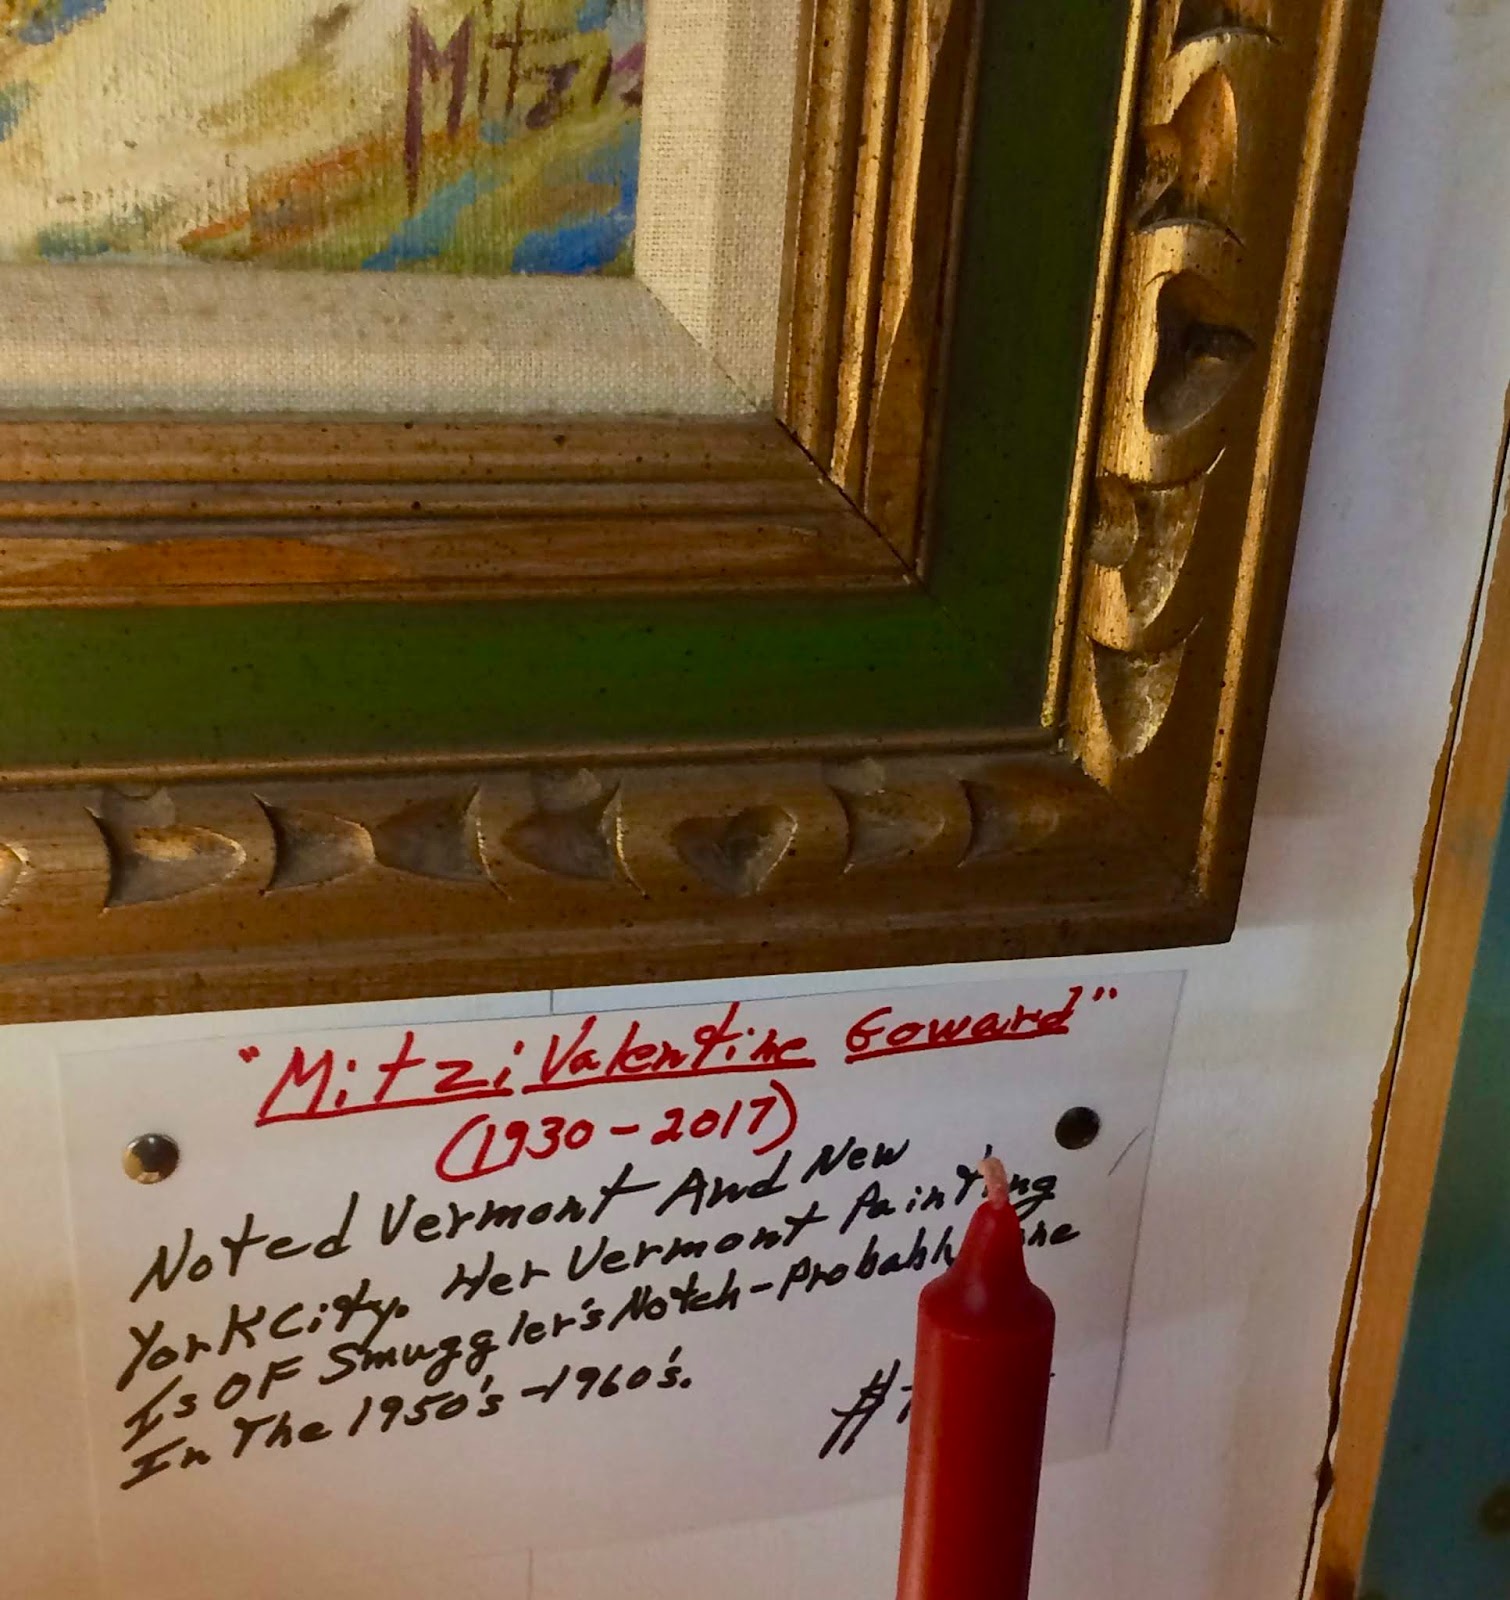 Mitzi
"Mitzi Valentine Goward"
(1930-2017)
Noted Vermont And New
York City. Her Vermont Painting
Is OF Smuggler's Notch-Probably
In The 1950's-1960's.
#